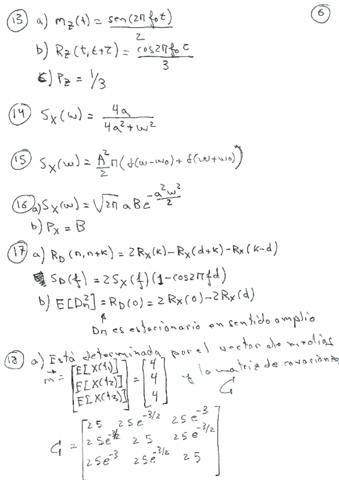 6
13 a) m_Z(t) = sen(2πf₀t) / 2
b) R_Z(t, t+τ) = cos2πf₀τ / 3
c) P_Z = 1/3
14 S_X(w) = 4a / (4a² + w²)
15 S_X(w) = A²/2 π (δ(w-w₀) + δ(w+w₀))
16 a) S_X(w) = √2π a B e^(-a²w²/2)
b) P_X = B
17 a) R_D(n, n+k) = 2R_X(k) - R_X(d+k) - R_X(k-d)
S_D(f) = 2S_X(f) (1-cos2πfd)
b) E[D_n²] = R_D(0) = 2R_X(0) - 2R_X(d)
Dn es estacionario en sentido amplio
18 a) Está determinada por el vector de medias
m = [E[X(t₁)] E[X(t₂)] E[X(t₃)]] = [4 4 4] y la matriz de covarianza
C
C = [25 25e^(-3/2) 25e^(-3)
25e^(-3/2) 25 25e^(-3/2)
25e^(-3) 25e^(-3/2) 25]